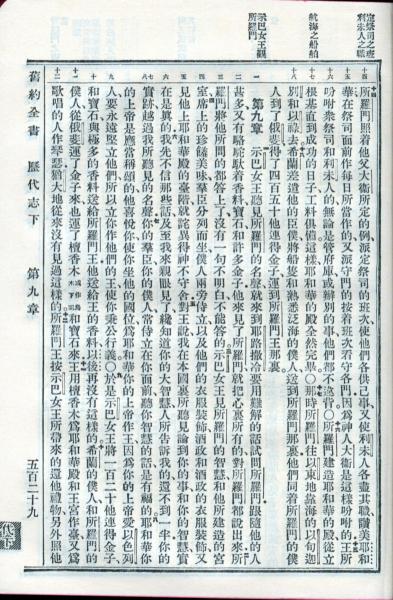 定祭司之班
利未人之職
航海之船舶
示巴女王覲
所羅門
十四 所羅門照着他父大衛所定的例派定祭司的班次使他們各供己事又使利未人各盡其職讚美耶和
十五 華在祭司面前作每日所當作的又派守門的按着班次看守各門因爲神人大衛是這樣吩咐的王所
十六 吩咐衆祭司和利未人的無論是管府庫或辦別的事他們都不違背○所羅門建造耶和華的殿從立
十七 根基直到成功的日子工料俱備這樣耶和華的殿全然完畢○那時所羅門往以東地靠海的以旬迦
十八 別和以祿去希蘭差遣他的臣僕將船隻和熟悉泛海的僕人送到所羅門那裏他們同着所羅門的僕
人到了俄斐得了四百五十他連得金子運到所羅門王那裏
一 第九章 示巴女王聽見所羅門的名聲就來到耶路撒冷要用難解的話試問所羅門跟隨他的人
二 甚多又有駱駝馱着香料寶石和許多金子他來見了所羅門就把心裏所有的對所羅門都說出來所
三 羅門將他所問的都答上了沒有一句不明白不能答的示巴女王見所羅門的智慧和他所建造的宮
四 室席上的珍饈美味羣臣分列而坐僕人兩旁侍立以及他們的衣服裝飾酒政和酒政的衣服裝飾又
五 見他上耶和華殿的臺階就詫異得神不守舍對王說我在本國裏所聽見論到你的事和你的智慧實
六 在是真的我先不信那些話及至我來親眼見了纔知道你的大智慧人所告訴我的還不到一半你的
七 八 實跡越過我所聽見的名聲你的羣臣你的僕人常侍立在你面前聽你智慧的話是有福的耶和華你
的上帝是應當稱頌的他喜悅你使你坐他的國位爲耶和華你的上帝作王因爲你的上帝愛以色列
九 人要永遠堅立他們所以立你作他們的王使你秉公行義○於是示巴女王將一百二十他連得金子
十 和寶石與極多的香料送給所羅門王他送給王的香料以後再沒有這樣的希蘭的僕人和所羅門的
十一 僕人從俄斐運了金子來也運了檀香木或作烏木下同寶石來王用檀香木爲耶和華殿和王宮作臺又爲
十二 歌唱的人作琴瑟猶大地從來沒有見過這樣的所羅門王按示巴女王所帶來的還他禮物另外照他
舊約全書 歷代志下 第九章 五百二十九
代下